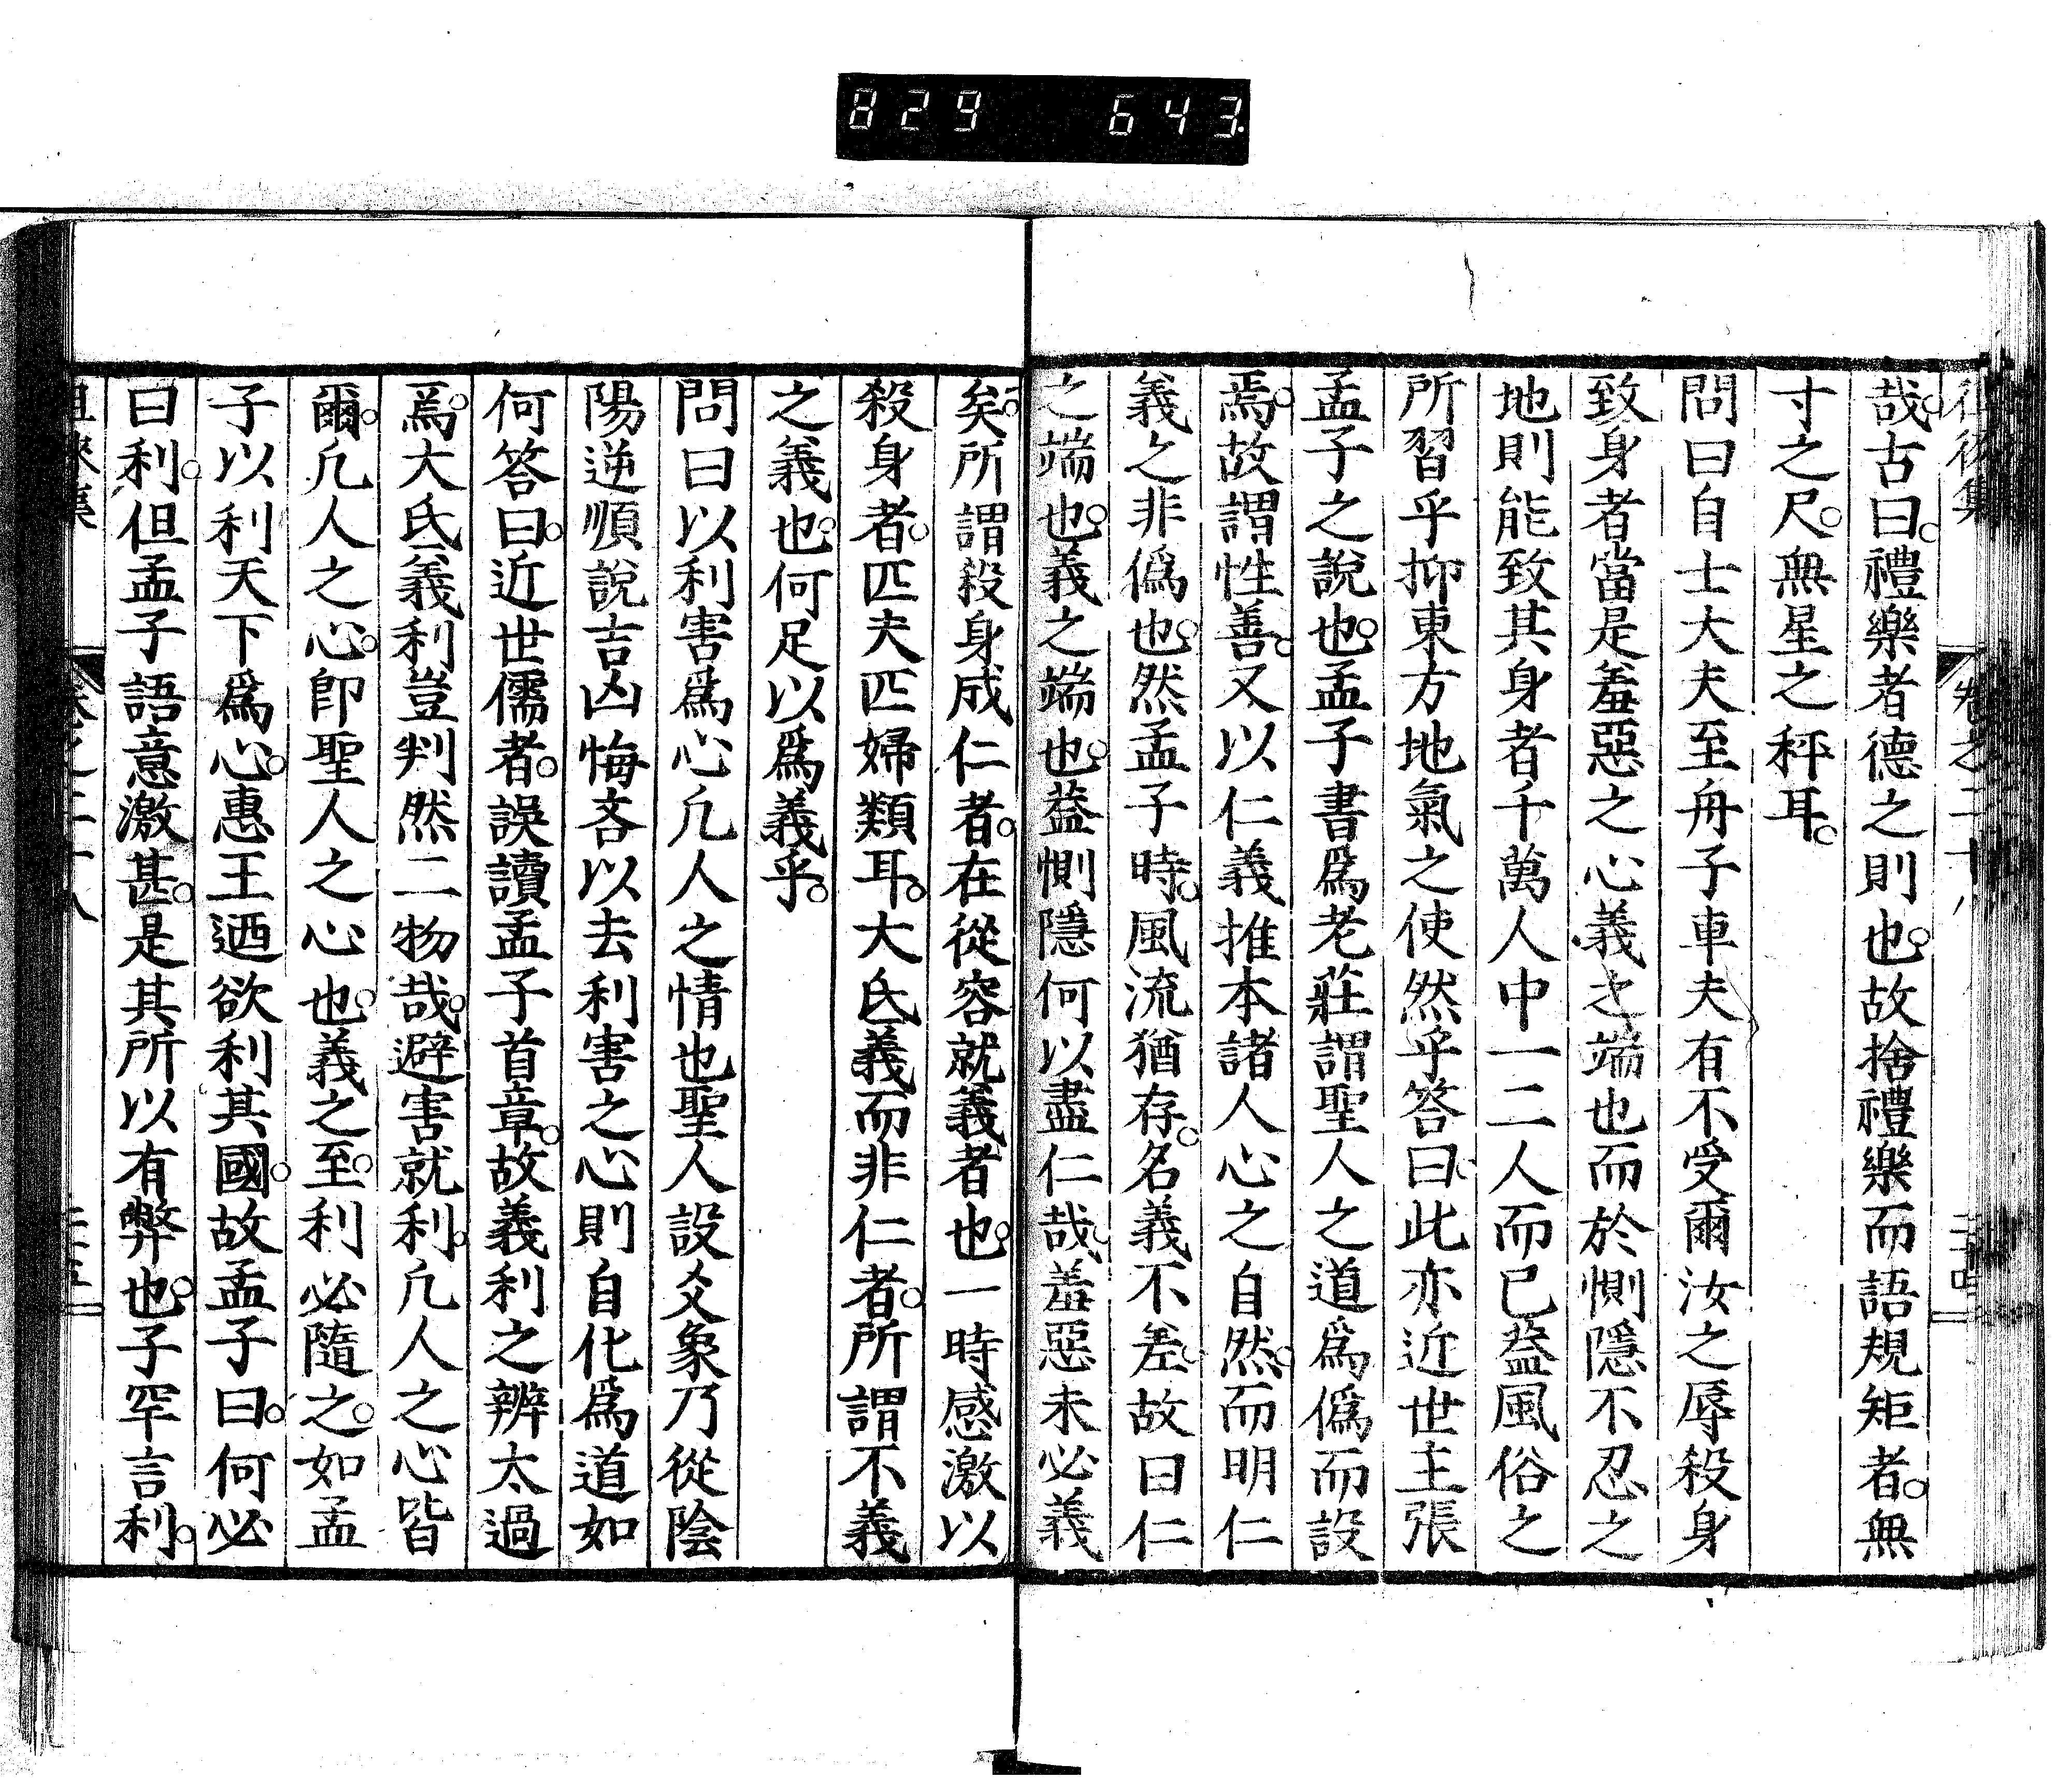 829 643
哉。古曰。禮樂者德之則也。故捨禮樂而語規矩者。無
寸之尺。無星之秤耳。
問曰自士大夫至舟子車夫有不受爾汝之辱殺身
致身者當是羞惡之心義之端也而於惻隱不忍之
地則能致其身者千萬人中一二人而已葢風俗之
所習乎抑東方地氣之使然乎答曰。此亦近世主張
孟子之說也。孟子書爲老莊謂聖人之道爲僞而設
焉。故謂性善。又以仁義推本諸人心之自然。而明仁
義之非僞也。然孟子時。風流猶存。名義不差。故曰仁
之端也。義之端也。葢惻隱何以盡仁哉。羞惡未必義
矣。所謂殺身成仁者。在從容就義者也。一時感激以
殺身者。匹夫匹婦類耳。大氐義而非仁者。所謂不義
之義也。何足以爲義乎。
問曰以利害爲心凡人之情也聖人設爻象乃從陰
陽逆順說吉凶悔吝以去利害之心則自化爲道如
何答曰。近世儒者。誤讀孟子首章。故義利之辨太過
焉。大氐義利豈判然二物哉。避害就利。凡人之心皆
爾。凡人之心。卽聖人之心也。義之至。利必隨之。如孟
子以利天下爲心。惠王迺欲利其國。故孟子曰。何必
曰利。但孟子語意激甚。是其所以有弊也。子罕言利。